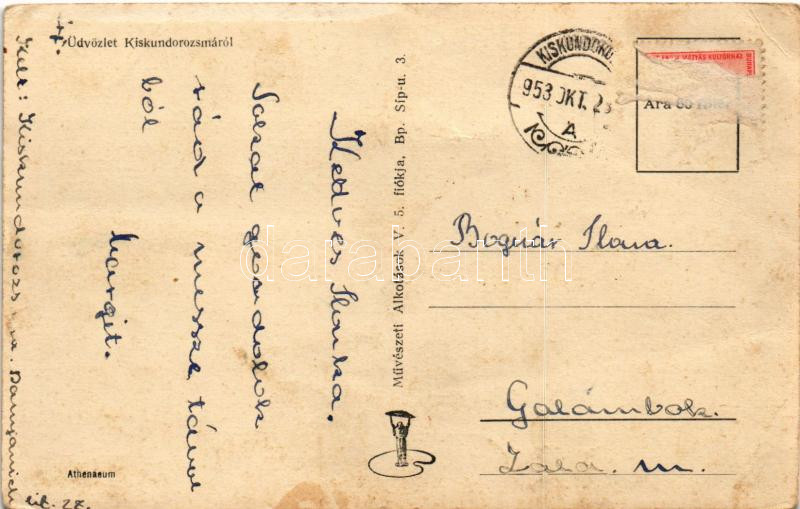 Üdvözlet Kiskundorozsmáról
Kedves Ilonka.
Sokat gondolok
rád a messze távol
ból
Margit.
Kiskundorozsma. Damjanich
27.
Athenaeum
Művészeti Alkotások V. 5. fiókja, Bp. Síp-u. 3.
953 OKT. 2
A
Ára 60 fillér
Bognár Ilona.
Galambok.
Zala. m.
darabanth